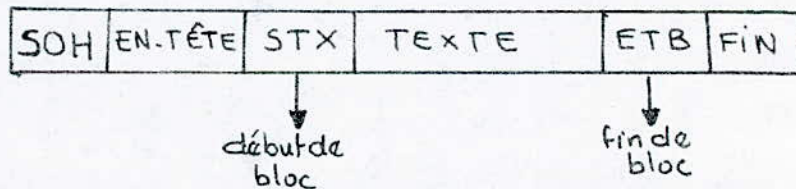 SOH EN-TÊTE STX TEXTE ETB FIN
début de fin de
bloc bloc